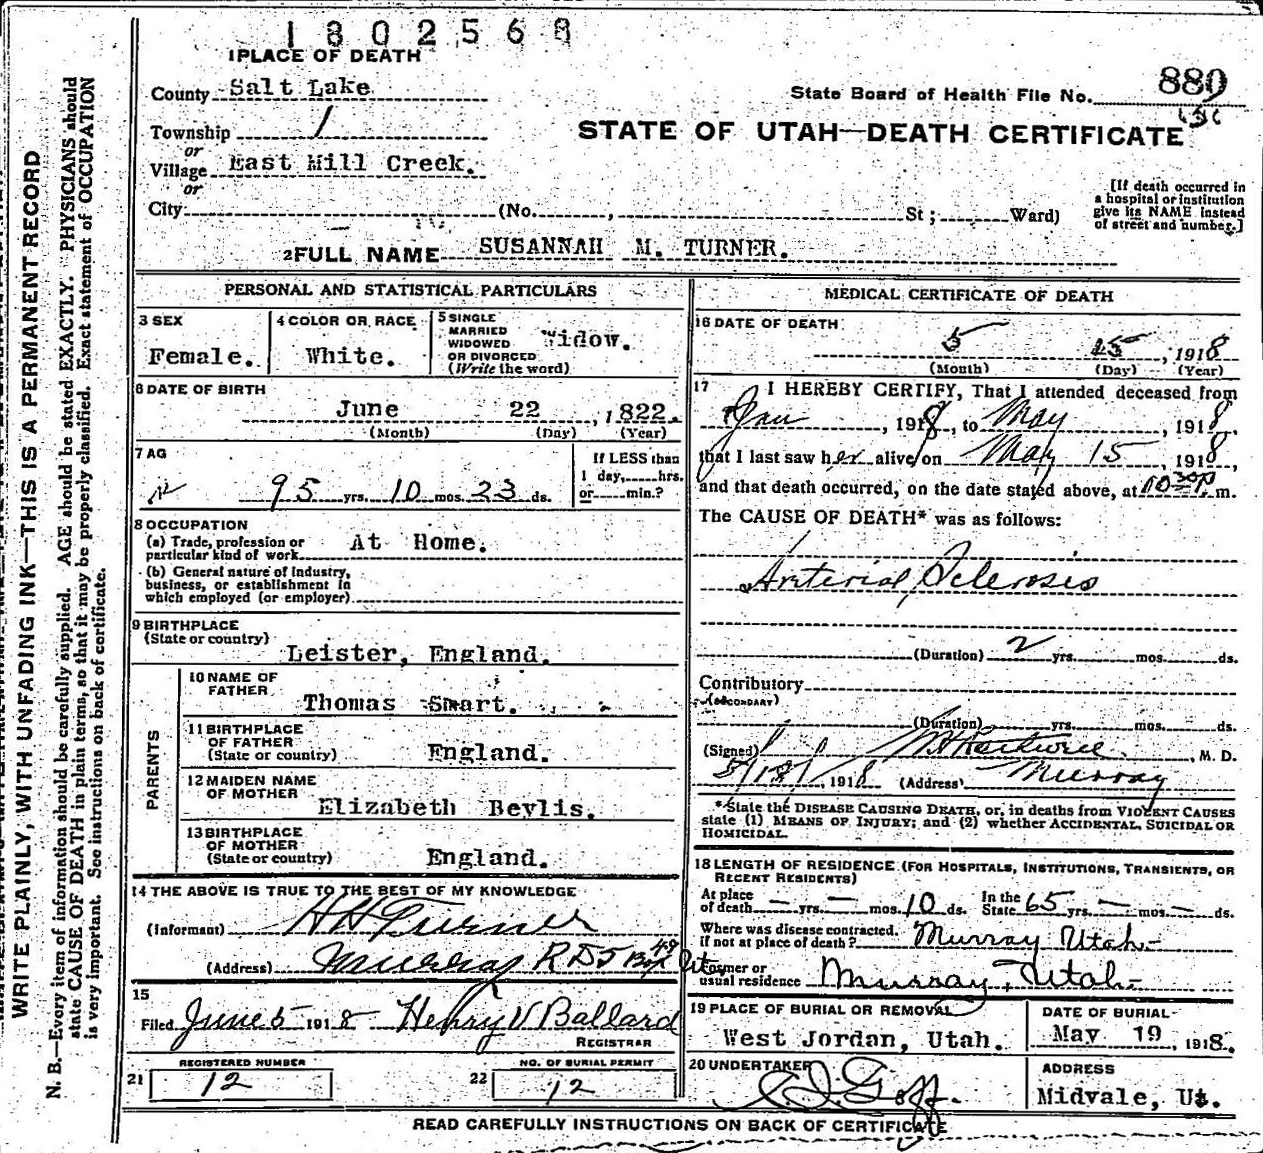 1802568
1 PLACE OF DEATH
County Salt Lake
State Board of Health File No. 889
Township 1
STATE OF UTAH—DEATH CERTIFICATE
or
Village East Mill Creek.
or
City (No. , St ; Ward)
[If death occurred in
a hospital or institution
give its NAME instead
of street and number.]
2 FULL NAME SUSANNAH M. TURNER.
PERSONAL AND STATISTICAL PARTICULARS
3 SEX
Female.
4 COLOR OR RACE
White.
5 SINGLE
MARRIED
WIDOWED
OR DIVORCED
(Write the word)
Widow.
6 DATE OF BIRTH
June 22 , 1822.
(Month) (Day) (Year)
7 AG
95 yrs. 10 mos. 23 ds.
If LESS than
1 day, hrs.
or min.?
8 OCCUPATION
(a) Trade, profession or
particular kind of work At Home.
(b) General nature of Industry,
business, or establishment in
which employed (or employer)
9 BIRTHPLACE
(State or country)
Leister, England.
PARENTS
10 NAME OF
FATHER
Thomas Smart.
11 BIRTHPLACE
OF FATHER
(State or country) England.
12 MAIDEN NAME
OF MOTHER
Elizabeth Beylis.
13 BIRTHPLACE
OF MOTHER
(State or country) England.
14 THE ABOVE IS TRUE TO THE BEST OF MY KNOWLEDGE
(Informant) H H Turner
(Address) Murray R D 5 Box 49 Ut
15
Filed June 5 1918 Henry V Ballard
REGISTRAR
21
REGISTERED NUMBER
12
22
NO. OF BURIAL PERMIT
12
MEDICAL CERTIFICATE OF DEATH
16 DATE OF DEATH
5 15 , 1918
(Month) (Day) (Year)
17 I HEREBY CERTIFY, That I attended deceased from
Jan , 1918, to May , 1918,
that I last saw her alive on May 15 , 1918,
and that death occurred, on the date stated above, at 10 30 P. m.
The CAUSE OF DEATH* was as follows:
Arterial Sclerosis
(Duration) 2 yrs. mos. ds.
Contributory
(SECONDARY)
(Duration) yrs. mos. ds.
(Signed) , M. D.
5/18/ , 1918 (Address) Murray
*State the DISEASE CAUSING DEATH, or, in deaths from VIOLENT CAUSES
state (1) MEANS OF INJURY; and (2) whether ACCIDENTAL, SUICIDAL OR
HOMICIDAL.
18 LENGTH OF RESIDENCE (FOR HOSPITALS, INSTITUTIONS, TRANSIENTS, OR
RECENT RESIDENTS)
At place
of death — yrs. — mos. 10 ds. In the
State 65 yrs. — mos. — ds.
Where was disease contracted,
if not at place of death? Murray Utah
Former or
usual residence Murray, Utah
19 PLACE OF BURIAL OR REMOVAL
West Jordan, Utah.
DATE OF BURIAL
May 19 , 1918.
20 UNDERTAKER
ADDRESS
Midvale, Ut.
READ CAREFULLY INSTRUCTIONS ON BACK OF CERTIFICATE
WRITE PLAINLY, WITH UNFADING INK—THIS IS A PERMANENT RECORD
N. B.—Every item of information should be carefully supplied. AGE should be stated EXACTLY. PHYSICIANS should
state CAUSE OF DEATH in plain terms, so that it may be properly classified. Exact statement of OCCUPATION
is very important. See instructions on back of certificate.